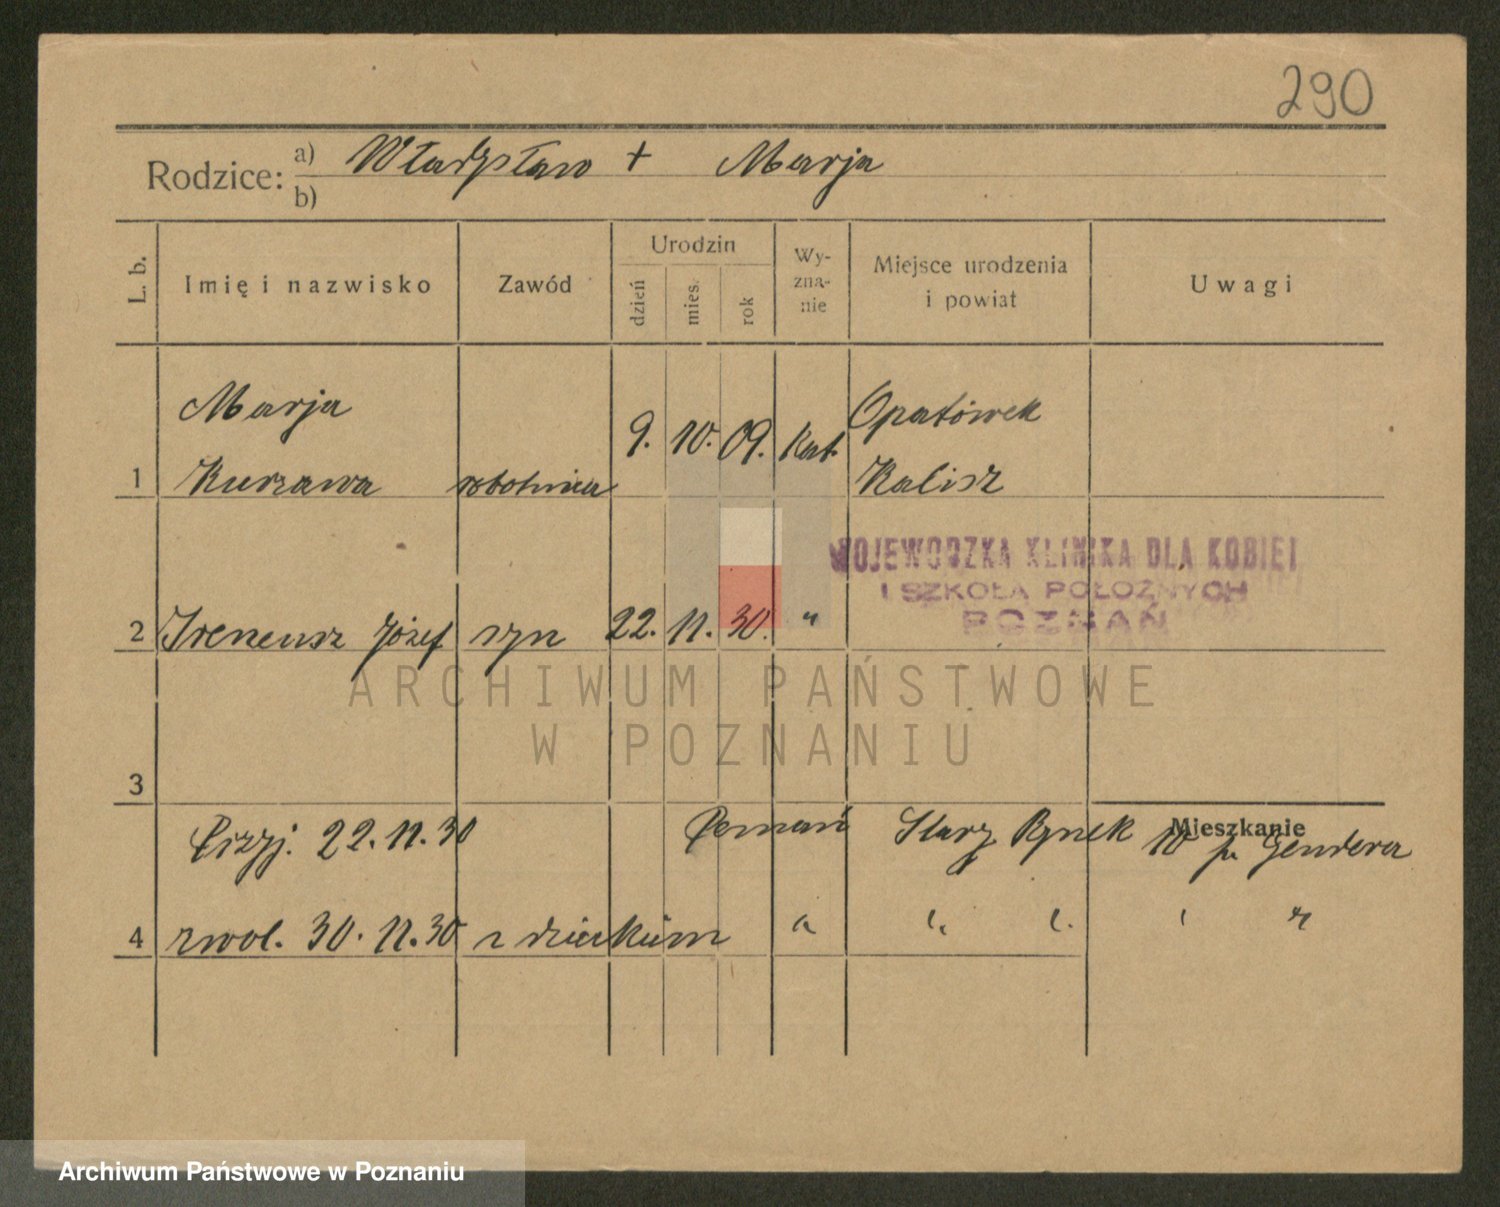 290
Rodzice: a) Władysław + Marja
b)
L. b. Imię i nazwisko Zawód Urodzin dzień mies. rok Wy-zna-nie Miejsce urodzenia i powiat Uwagi
Marja Opatówek
9. 10. 09. Kat.
1 Kurzawa robotnica Kalisz
WOJEWODZKA KLINIKA DLA KOBIET
I SZKOŁA POŁOŻNYCH
POZNAŃ
2 Ireneusz Józef syn 22. 11. 30. "
ARCHIWUM PAŃSTWOWE
W POZNANIU
3
Mieszkanie
Przyj. 22.11.30 Poznań Stary Rynek 10 Gendera
4 zwol. 30. 11. 30 z dzieckiem " " " " "
Archiwum Państwowe w Poznaniu